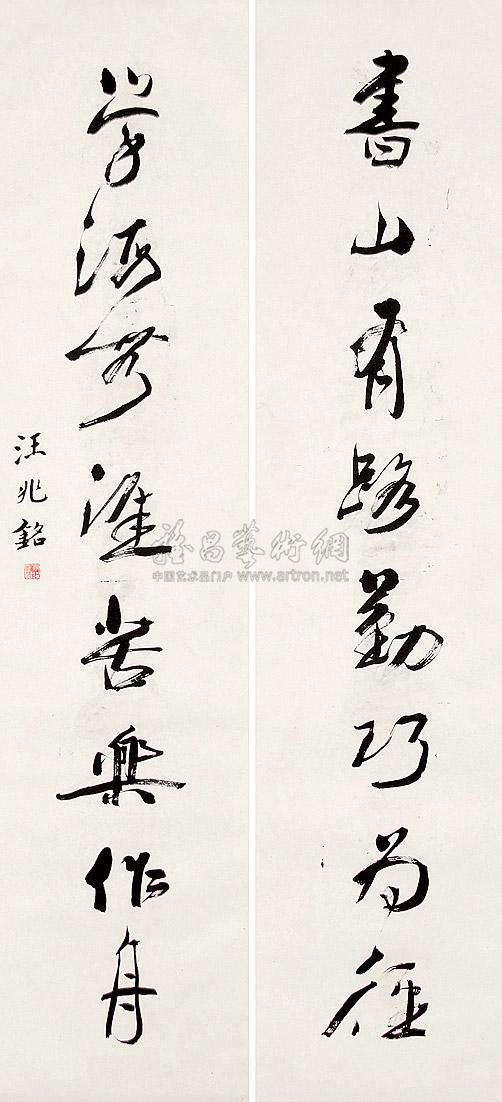 書山有路勤巧為徑
學海無涯苦樂作舟
汪兆銘
雅昌藝術網
中国艺术品门户 www.artron.net